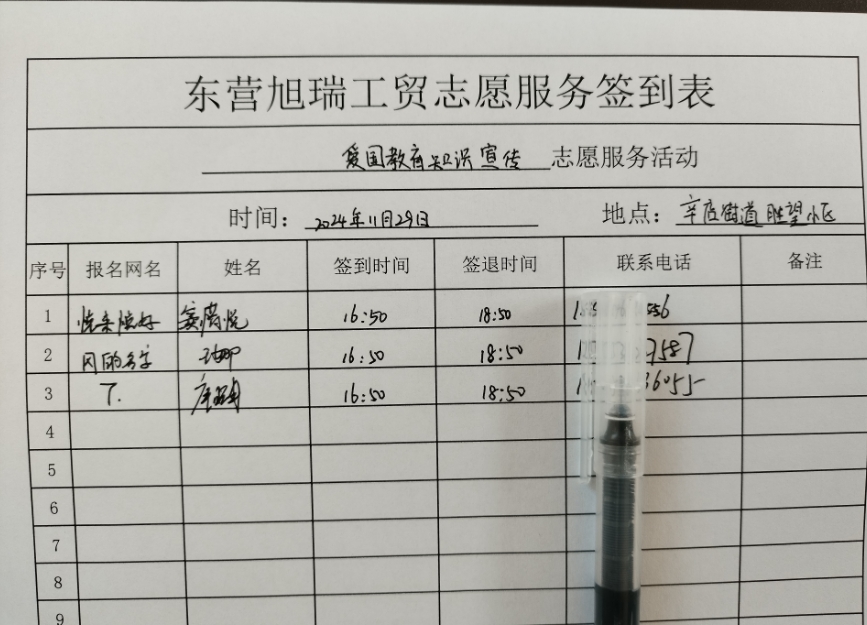 东营旭瑞工贸志愿服务签到表
爱国教育知识宣传 志愿服务活动
时间： 2024年11月29日 地点： 辛店街道胜望小区
序号 报名网名 姓名 签到时间 签退时间 联系电话 备注
1 16:50 18:50
2 16:50 18:50 587
3 了. 16:50 18:50 36055
4
5
6
7
8
9